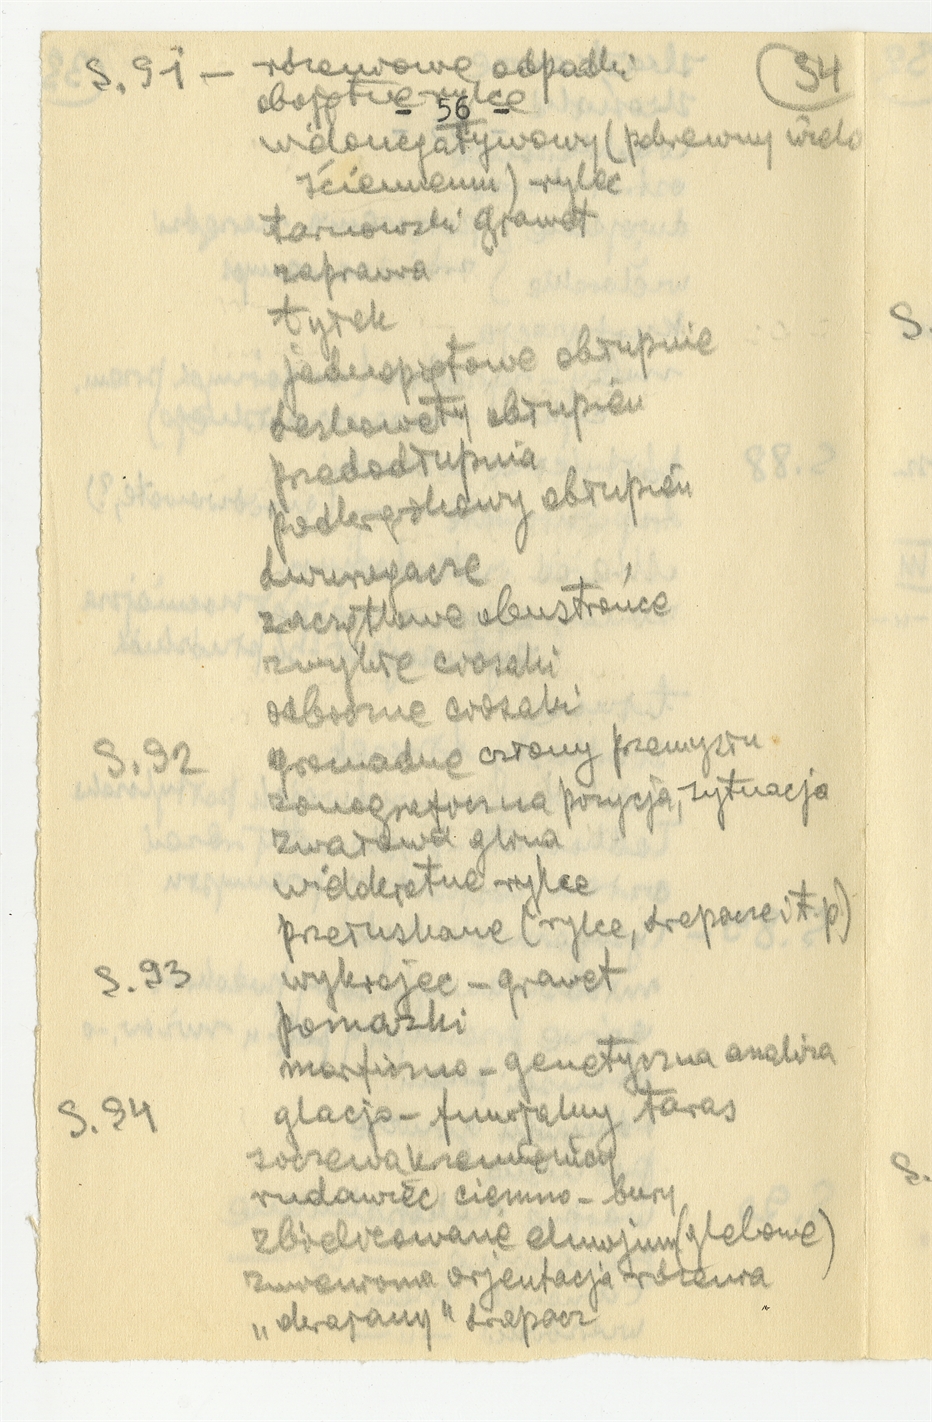 S. 91 – rdzeniowe odpadki 94
obojętne rylce
- 56 -
widoncjatywowy (pobrzewny wielo
ściennemu) rylec
tarnowski grawet
zaprawa
tyłek
jednopiętowe obłupnie
deskowaty obłupień
przedodłupnia
podkrążkowy obłupień
dwurogacze
zaczątkowe obustrońce
zwykłe ciosaki
odboczne ciosaki
S. 92 gromadne człony przemysłu
zonograficzna pozycja, sytuacja
zwałowa glina
widderatne rylce
przełuskane (rylce, drapacze i t. p.)
S. 93 wykrojec – grawet
pomazki
morficzno – genetyczna analiza
S. 94 glacjo – fluwjalny taras
soczewa krzemienicy
rudawiec ciemno – bury
zbielicowane eluwjum (glebowe)
zmieniona orjentacja rdzenia
„derajany" drapacz